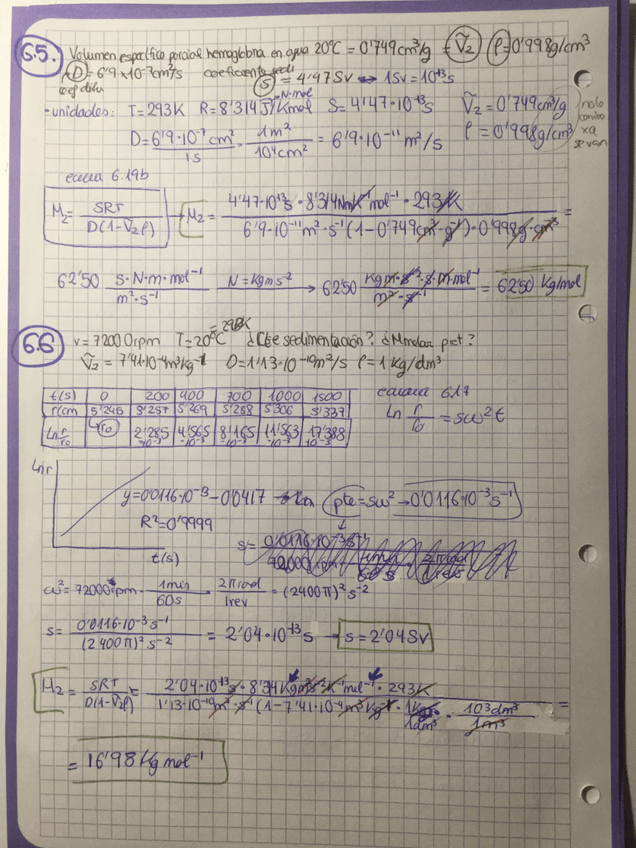 6.5. Volumen específico parcial hemoglobina en agua 20°C = 0'749 cm³/g = Ṽ₂ ρ = 0'998 g/cm³
D = 6'9 × 10⁻⁷ cm²/s coeficiente sedi S = 4'47 Sv → 1 Sv = 10⁻¹³ s
N·mol
- unidades: T = 293K R = 8'314 J/Kmol S = 4'47·10⁻¹³ s Ṽ₂ = 0'749 cm³/g
ρ = 0'998 g/cm³ se van
D = 6'9·10⁻⁷ cm² / 1s · 1m² / 10⁴ cm² = 6'9·10⁻¹¹ m²/s
6.19b
M₂ = SRT / D(1-Ṽ₂ρ) → M₂ = 4'47·10⁻¹³ s · 8'314 N m K⁻¹ mol⁻¹ · 293K / 6'9·10⁻¹¹ m²·s⁻¹ (1-0'749 cm³·g⁻¹)·0'998 g·cm⁻³ =
62'50 s·N·m·mol⁻¹ / m²·s⁻¹ N = Kg m s⁻² → 62'50 Kg m·s⁻²·s·m·mol⁻¹ / m²·s⁻¹ = 62'50 Kg/mol
6.6 v = 72000 rpm T = 20°C = 293K ¿Cte sedimentación? ¿Mmolar prt?
Ṽ₂ = 7'41·10⁻⁴ m³ kg⁻¹ D = 1'13·10⁻¹⁰ m²/s ρ = 1 Kg/dm³
t(s) 0 200 400 700 1000 1500
r/cm 5'245 5'257 5'269 5'288 5'306 5'337
Ln r/r₀ r₀ 2'285·10⁻³ 4'565·10⁻³ 8'165·10⁻³ 11'563·10⁻³ 17'388·10⁻³
6.17
Ln r/r₀ = sω²t
Ln r
y = 0'0116·10⁻³ - 0'0417 pte = sω² → 0'0116·10⁻³ s⁻¹
R² = 0'9999
t(s)
ω² = 72000 rpm · 1min / 60s · 2π rad / 1rev = (2400π)² s⁻²
s = 0'0116·10⁻³ s⁻¹ / (2400π)² s⁻² = 2'04·10⁻¹³ s → s = 2'04 Sv
M₂ = SRT / D(1-Ṽ₂ρ) = 2'04·10⁻¹³ s · 8'314 Kg m² s⁻² K⁻¹ mol⁻¹ · 293K / 1'13·10⁻¹⁰ m²·s⁻¹ (1-7'41·10⁻⁴ m³ Kg⁻¹ · 1Kg / 1dm³ · 10³ dm³ / 1m³ =
= 16'98 Kg mol⁻¹